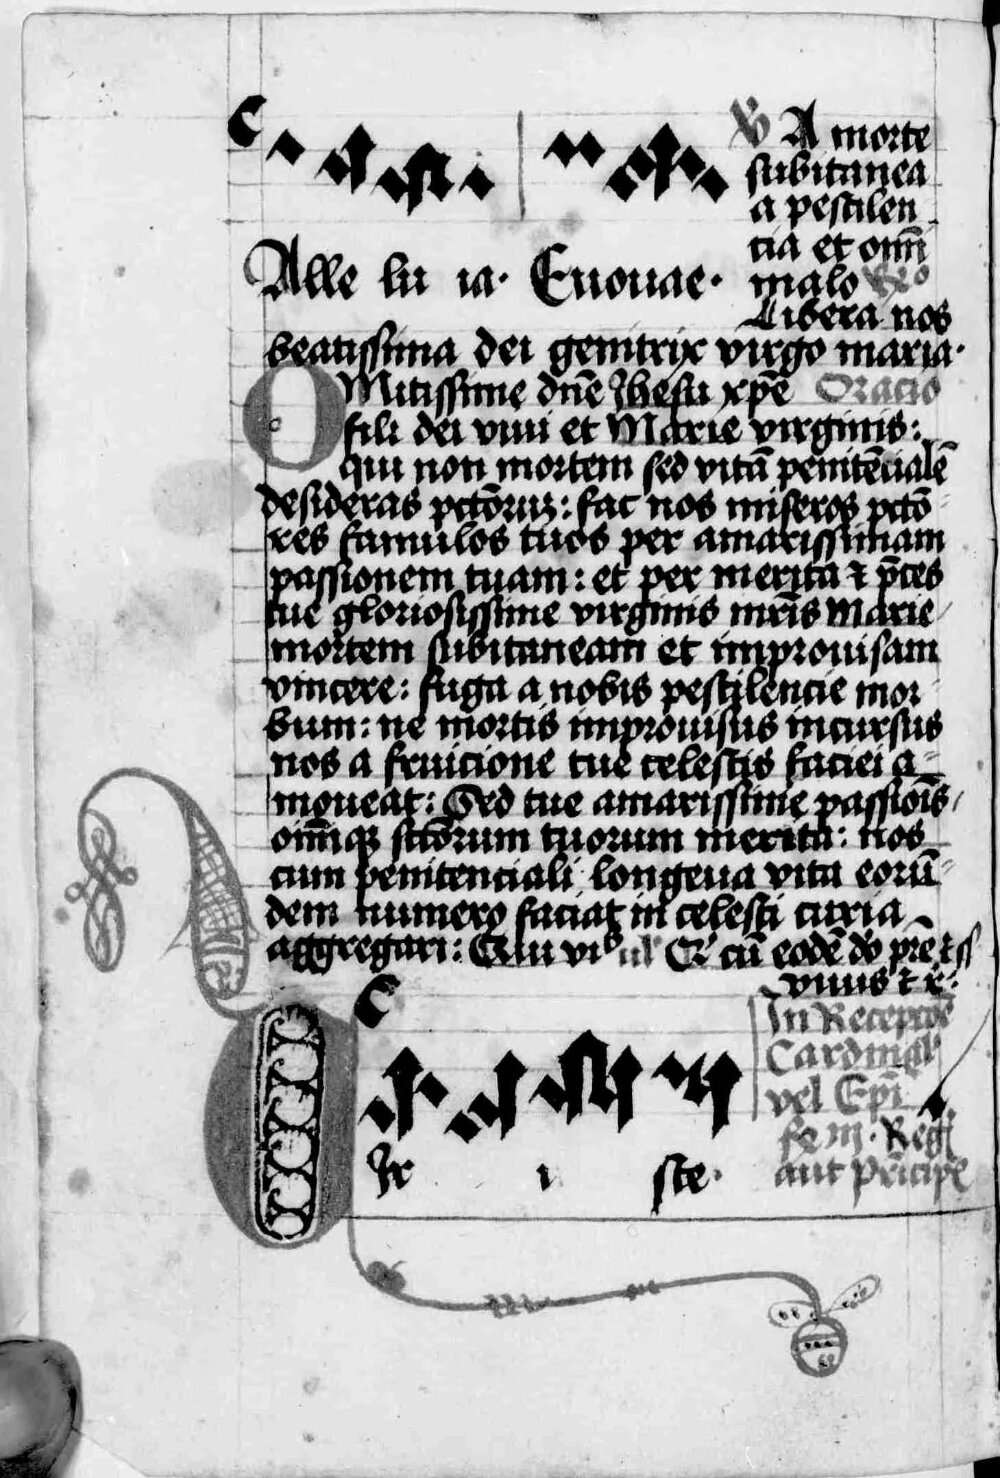 ℣ A morte
subitanea
a pestilen
tia et om̄i
malo
Libera nos
Alle lu ia. Euouae.
beatissima dei genitrix virgo maria.
O Mitissime dn̄e Jhesu xp̄e Oracio
fili dei viui et Marie virginis:
qui non mortem sed vitā penitēcialē
desideras pctōruʒ: fac nos miseros pctō
res famulos tuos per amarissimam
passionem tuam: et per merita ⁊ p̄ces
tue gloriosissime virginis mr̄is Marie
mortem subitaneam et improuisam
vincere: fuga a nobis pestilencie mor
bum: ne mortis improuisus incursus
nos a fruicione tue celestis faciei a-
moueat: Sed tue amarissime passiōis
om̄iqꝫ sctōrum tuorum merita: nos
cum penitenciali longeua vita eorū-
dem numero faciat in celesti curia
aggregari: Qui vi cū eodē do pr̄e ⁊ s
viuis ⁊ r:
In Recepcōe
Cardinal
vel Ep̄i
Reg
aut Pricipe
Vir i ste.